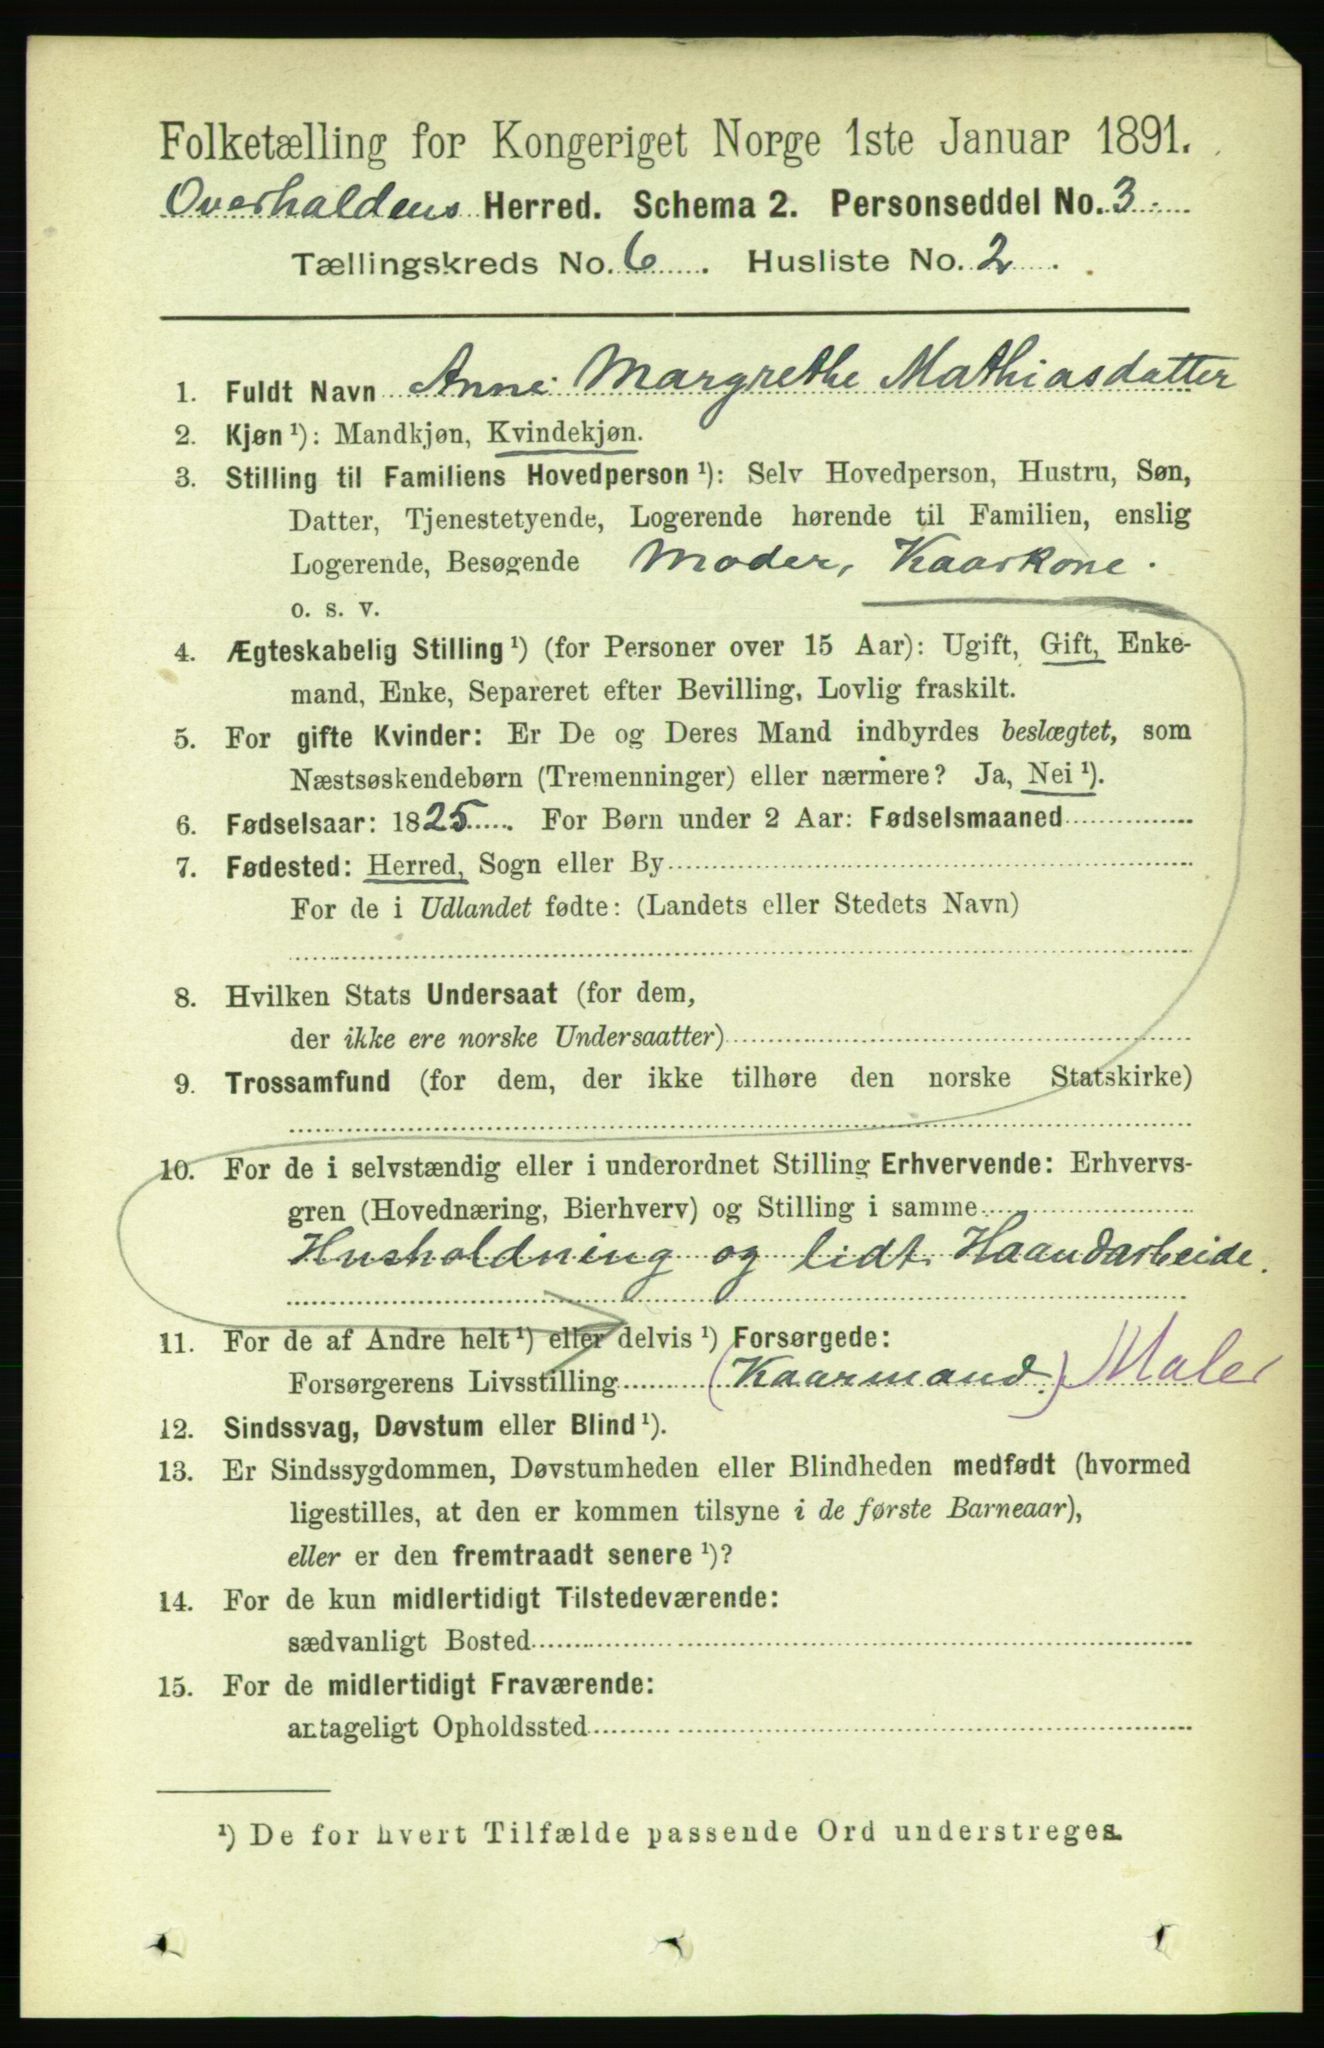 Folketælling for Kongeriget Norge 1ste Januar 1891.
Overhaldens Herred. Schema 2. Personseddel No. 3
Tællingskreds No. 6. Husliste No. 2.
1. Fuldt Navn Anne Margrethe Mathiasdatter
2. Kjøn ¹): Mandkjøn, Kvindekjøn.
3. Stilling til Familiens Hovedperson ¹): Selv Hovedperson, Hustru, Søn,
Datter, Tjenestetyende, Logerende hørende til Familien, enslig
Logerende, Besøgende Moder, Kaarkone.
o. s. v.
4. Ægteskabelig Stilling ¹) (for Personer over 15 Aar): Ugift, Gift, Enke-
mand, Enke, Separeret efter Bevilling, Lovlig fraskilt.
5. For gifte Kvinder: Er De og Deres Mand indbyrdes beslægtet, som
Næstsøskendebørn (Tremenninger) eller nærmere? Ja, Nei ¹).
6. Fødselsaar: 1825. For Børn under 2 Aar: Fødselsmaaned
7. Fødested: Herred, Sogn eller By
For de i Udlandet fødte: (Landets eller Stedets Navn)
8. Hvilken Stats Undersaat (for dem,
der ikke ere norske Undersaatter)
9. Trossamfund (for dem, der ikke tilhøre den norske Statskirke)
10. For de i selvstændig eller i underordnet Stilling Erhvervende: Erhvervs-
gren (Hovednæring, Bierhverv) og Stilling i samme
Husholdning og lidt Haandarbeide.
11. For de af Andre helt ¹) eller delvis ¹) Forsørgede:
Forsørgerens Livsstilling (Kaarmand.) Maler
12. Sindssvag, Døvstum eller Blind ¹).
13. Er Sindssygdommen, Døvstumheden eller Blindheden medfødt (hvormed
ligestilles, at den er kommen tilsyne i de første Barneaar),
eller er den fremtraadt senere ¹)?
14. For de kun midlertidigt Tilstedeværende:
sædvanligt Bosted
15. For de midlertidigt Fraværende:
antageligt Opholdssted
¹) De for hvert Tilfælde passende Ord understreges.